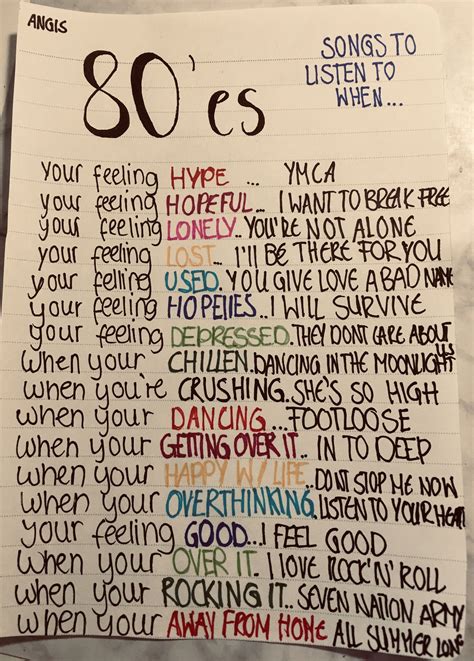 ANGIS
80'es
SONGS TO
LISTEN TO
WHEN...
your feeling HYPE ... YMCA
your feeling HOPEFUL... I WANT TO BREAK FREE
your feeling LONELY.. YOU'RE NOT ALONE
your feeling LOST... I'LL BE THERE FOR YOU
your felling USED. YOU GIVE LOVE A BAD NAME
your feeling HOPELLES.. I WILL SURVIVE
your feeling DEPRESSED. THEY DONT CARE ABOUT US
when your CHILLEN. DANCING IN THE MOONLIGHT
when you're CRUSHING. SHE'S SO HIGH
when your DANCING ... FOOTLOOSE
when your GETTING OVER IT.. IN TO DEEP
when your HAPPY W/ LIFE.. DONT STOP ME NOW
when your OVERTHINKING. LISTEN TO YOUR HEART
your feeling GOOD... I FEEL GOOD
when your OVER IT. I LOVE ROCK'N' ROLL
when your ROCKING IT.. SEVEN NATION ARMY
when your AWAY FROM HOME ALL SUMMER LONG